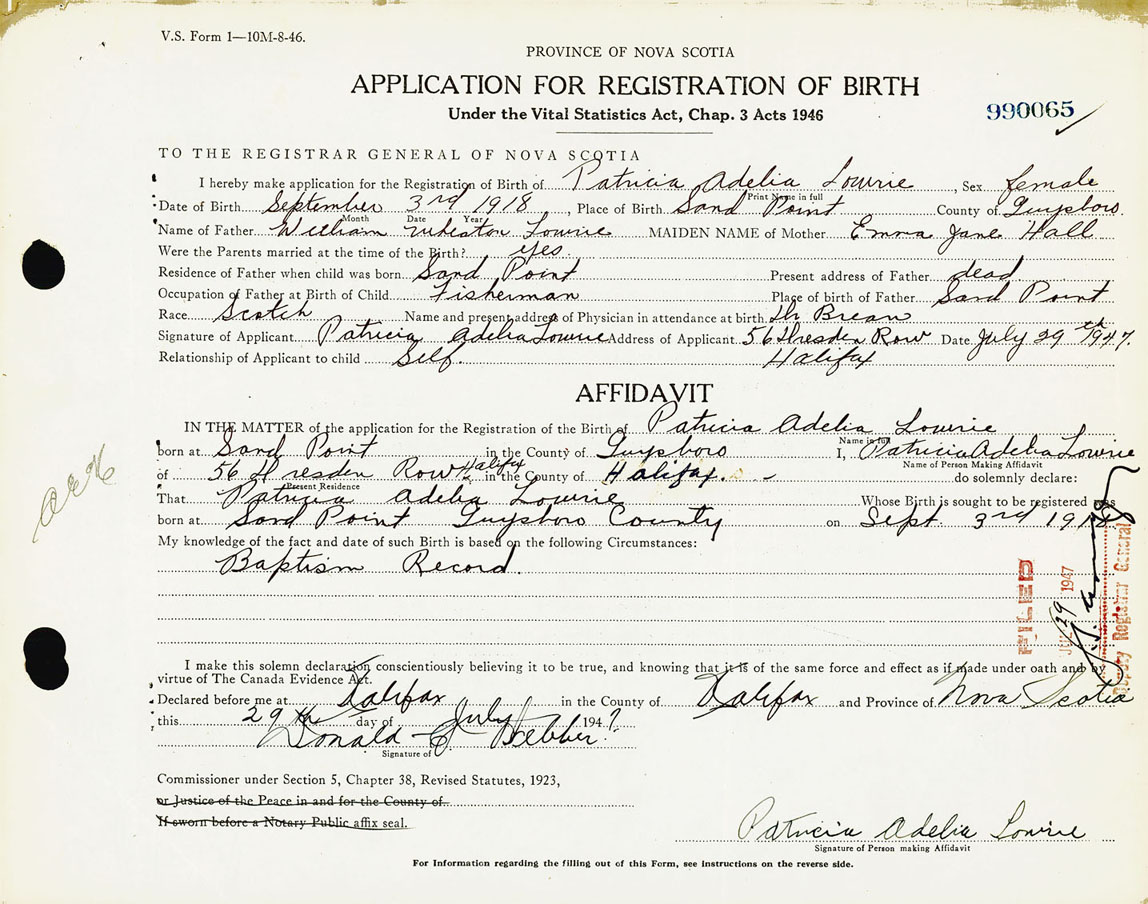 V.S. Form 1—10M-8-46.
PROVINCE OF NOVA SCOTIA
APPLICATION FOR REGISTRATION OF BIRTH
Under the Vital Statistics Act, Chap. 3 Acts 1946
990065
TO THE REGISTRAR GENERAL OF NOVA SCOTIA
I hereby make application for the Registration of Birth of Patricia Adelia Lowrie, Sex female
Print Name in full
Date of Birth September 3rd 1918, Place of Birth Sand Point County of Guysboro.
Month Date Year
Name of Father William Wheaton Lowrie MAIDEN NAME of Mother Emma Jane Hall
Were the Parents married at the time of the Birth? yes.
Residence of Father when child was born Sand Point Present address of Father dead
Occupation of Father at Birth of Child Fisherman Place of birth of Father Sand Point
Race Scotch Name and present address of Physician in attendance at birth Dr Brean
Signature of Applicant Patricia Adelia Lowrie Address of Applicant 56 Dresden Row Date July 29th 1947.
Relationship of Applicant to child Self Halifax
AFFIDAVIT
IN THE MATTER of the application for the Registration of the Birth of Patricia Adelia Lowrie
Name in full
born at Sand Point in the County of Guysboro I, Patricia Adelia Lowrie
Name of Person Making Affidavit
of 56 Dresden Row Halifax in the County of Halifax. do solemnly declare:
Present Residence
That Patricia Adelia Lowrie Whose Birth is sought to be registered was
born at Sand Point Guysboro County on Sept. 3rd 1918
My knowledge of the fact and date of such Birth is based on the following Circumstances:
Baptism Record.
FILED
JUL 29 1947
Deputy Registrar General
I make this solemn declaration conscientiously believing it to be true, and knowing that it is of the same force and effect as if made under oath and by
virtue of The Canada Evidence Act.
Declared before me at Halifax in the County of Halifax and Province of Nova Scotia
this 29th day of July 1947
Donald C Webber
Signature of
Commissioner under Section 5, Chapter 38, Revised Statutes, 1923,
or Justice of the Peace in and for the County of
If sworn before a Notary Public affix seal.
Patricia Adelia Lowrie
Signature of Person making Affidavit
For Information regarding the filling out of this Form, see instructions on the reverse side.